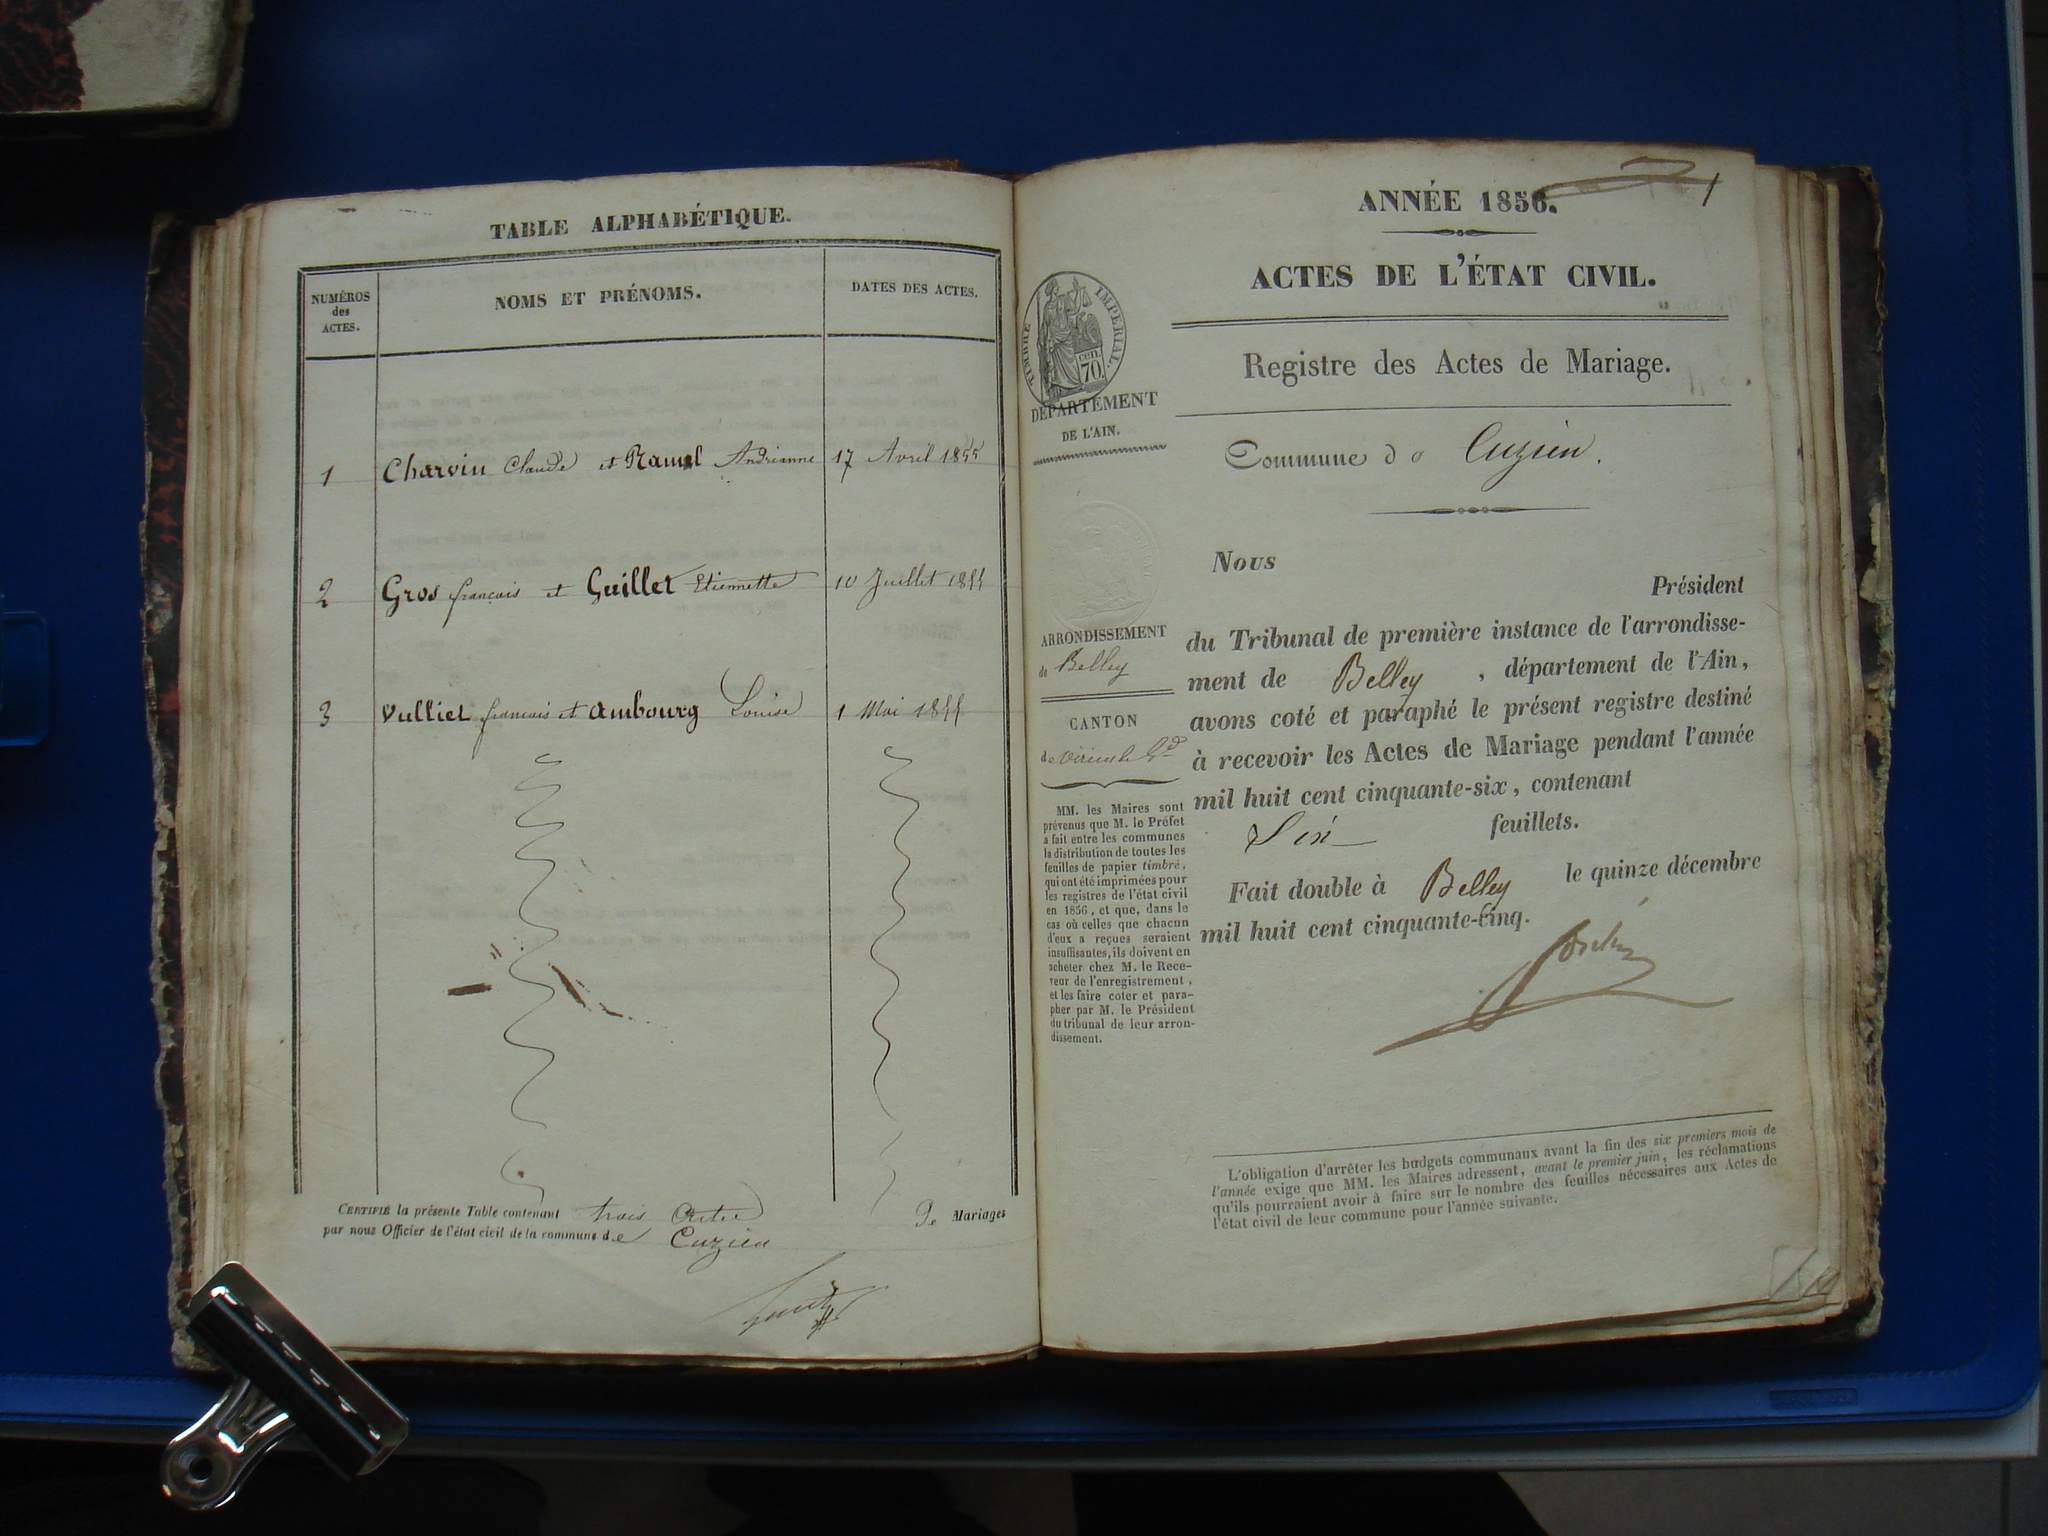 TABLE ALPHABÉTIQUE.
NUMÉROS
des
ACTES.
NOMS ET PRÉNOMS.
DATES DES ACTES.
1 Charvin Claude et Ramel Andrianne 17 Avril 1855
2 Gros françois et Guillet Etiennette 10 Juillet 1855
3 Vulliet françois et Ambourg Louise 1 Mai 1855
CERTIFIÉ la présente Table contenant trois Actes de Mariages
par nous Officier de l'état civil de la commune de Cuzieu
1
ANNÉE 1856.
ACTES DE L'ÉTAT CIVIL.
TIMBRE IMPÉRIAL.
cen.
70
DÉPARTEMENT
DE L'AIN.
Registre des Actes de Mariage.
Commune de Cuzieu.
ARRONDISSEMENT
de Belley
CANTON
de Virieu le Gd
MM. les Maires sont
prévenus que M. le Préfet
a fait entre les communes
la distribution de toutes les
feuilles de papier timbré,
qui ont été imprimées pour
les registres de l'état civil
en 1856, et que, dans le
cas où celles que chacun
d'eux a reçues seraient
insuffisantes, ils doivent en
acheter chez M. le Rece-
veur de l'enregistrement,
et les faire coter et para-
pher par M. le Président
du tribunal de leur arron-
dissement.
Nous
Président
du Tribunal de première instance de l'arrondisse-
ment de Belley, département de l'Ain,
avons coté et paraphé le présent registre destiné
à recevoir les Actes de Mariage pendant l'année
mil huit cent cinquante-six, contenant
Six feuillets.
Fait double à Belley le quinze décembre
mil huit cent cinquante-cinq.
L'obligation d'arrêter les budgets communaux avant la fin des six premiers mois de
l'année exige que MM. les Maires adressent, avant le premier juin, les réclamations
qu'ils pourraient avoir à faire sur le nombre des feuilles nécessaires aux Actes de
l'état civil de leur commune pour l'année suivante.